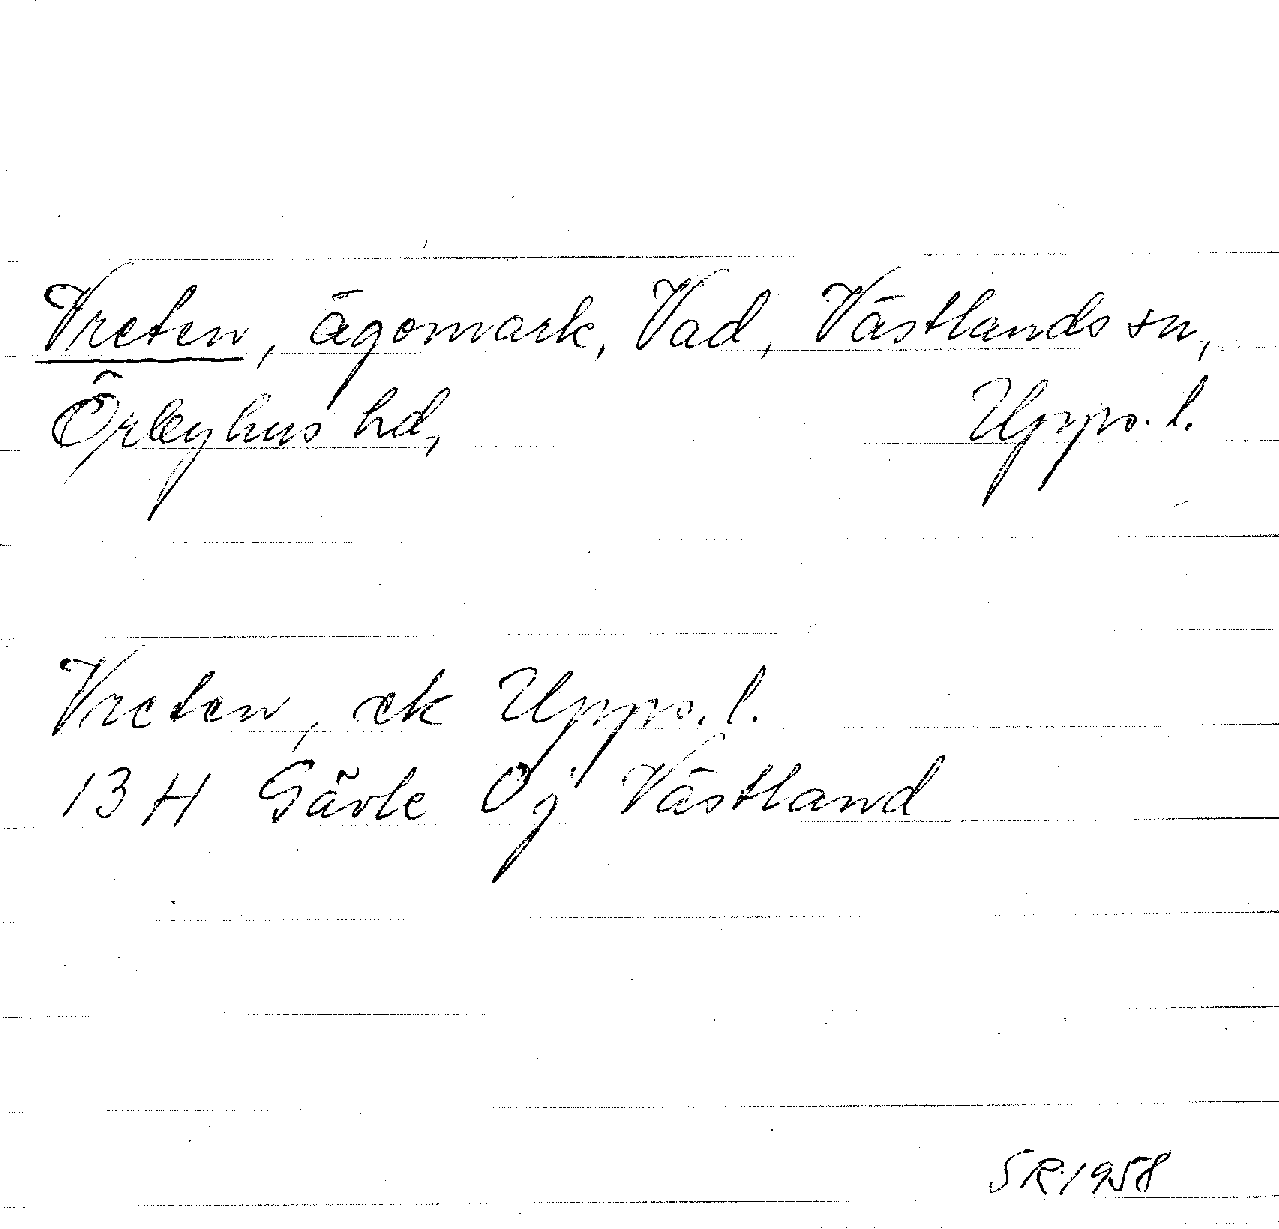 Vreten, ägomark, Vad, Västlands sn,
Örbyhus hd, Upps. l.
Vreten, ek Upps. l.
13 H Gävle 0j Västland
SR 1958